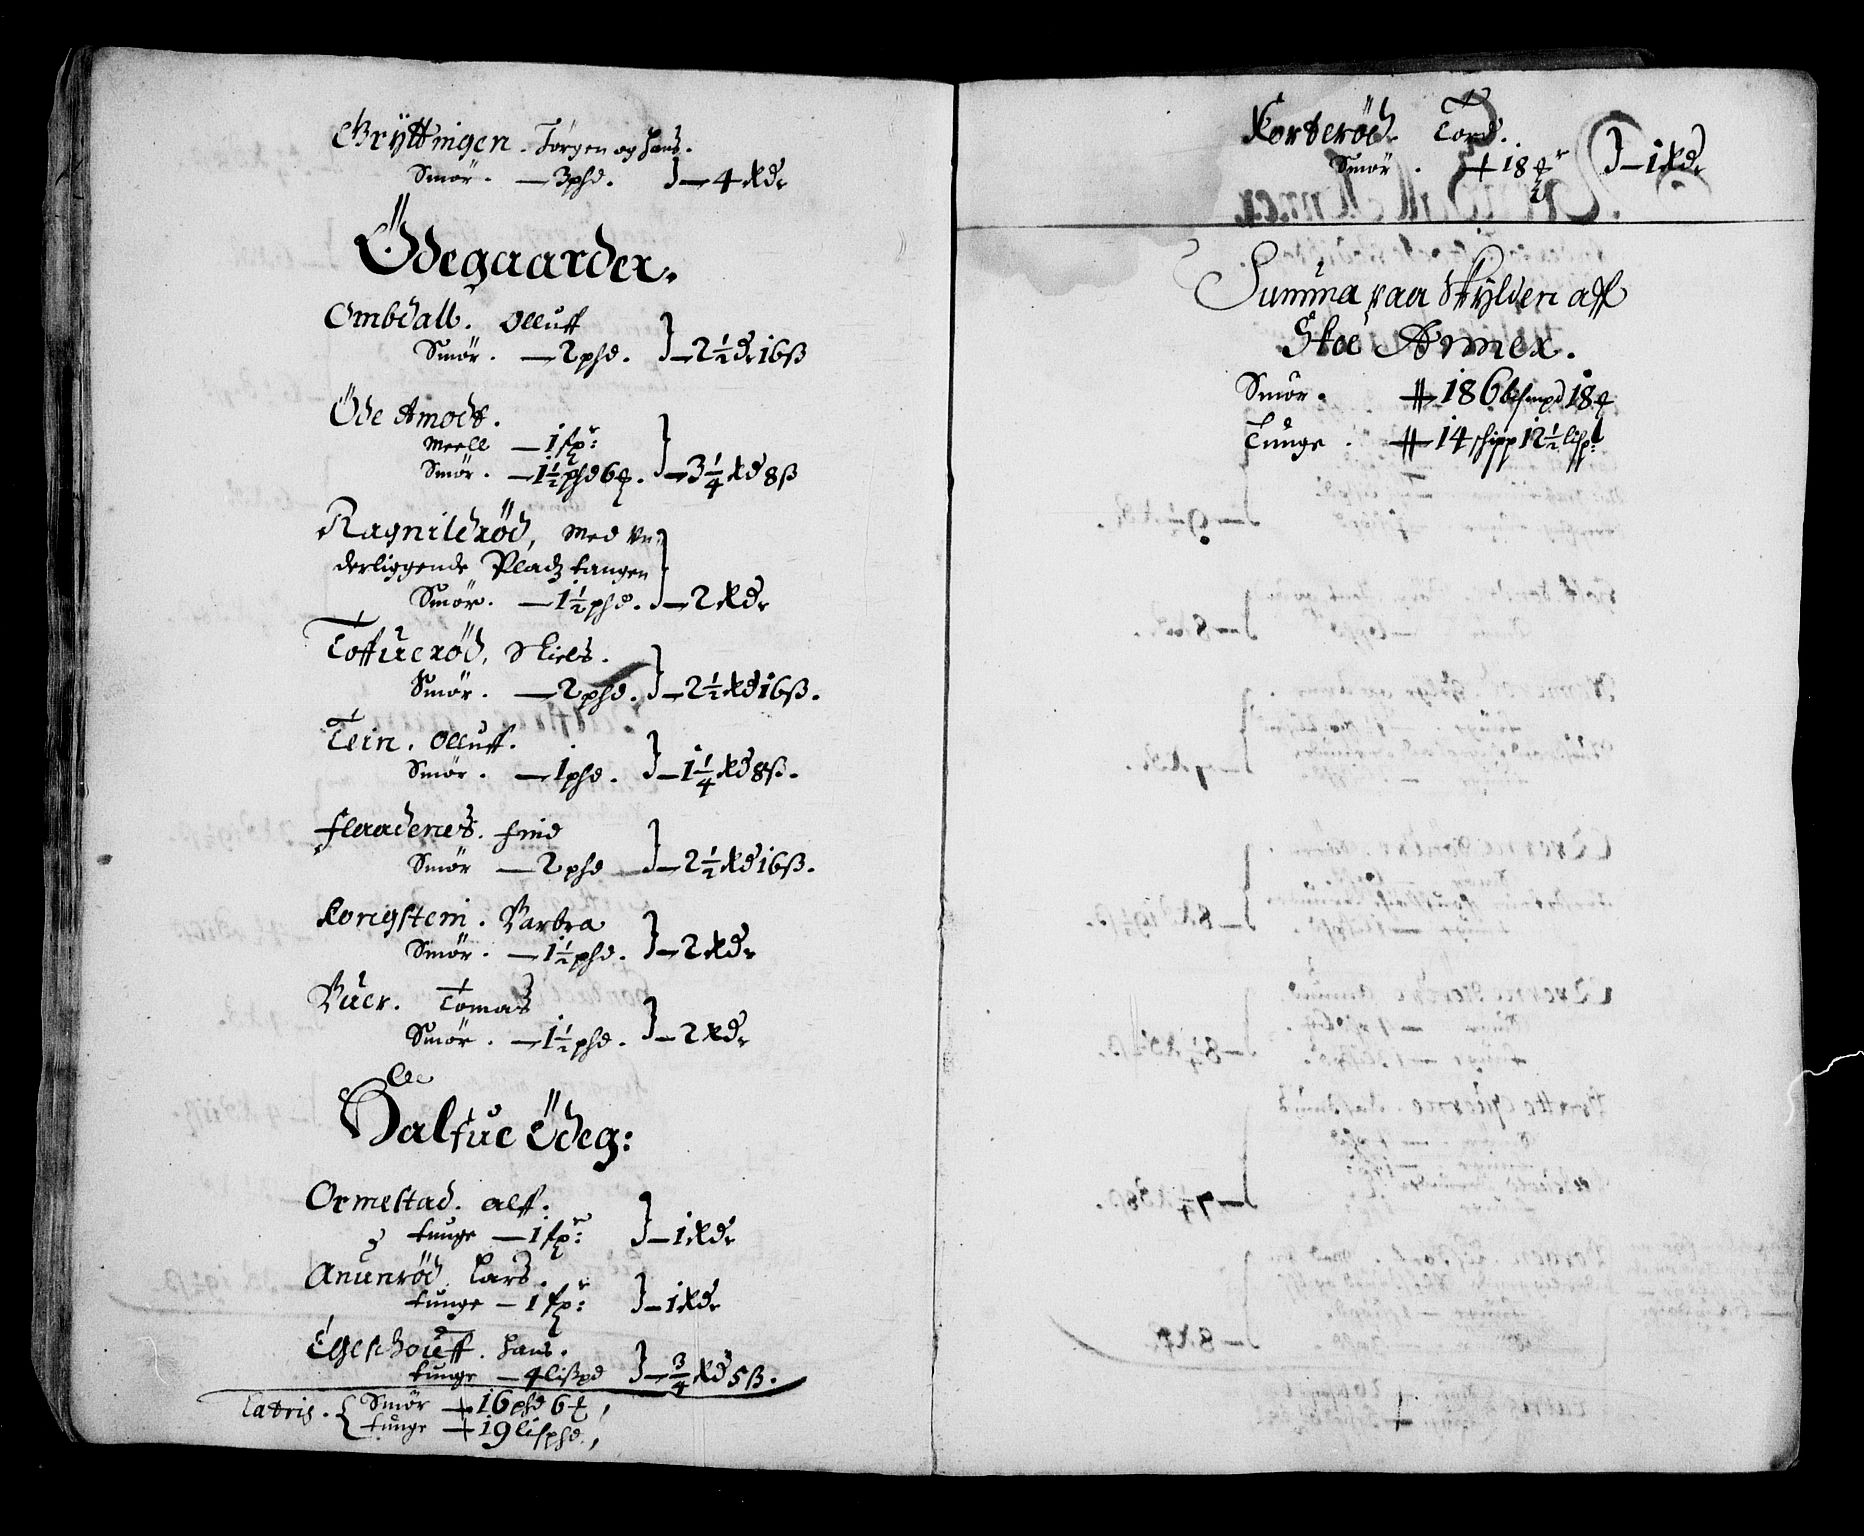 Gryttingen. Jörgen og Hans.
Smör. — 3 phd. } — 4 Rdr
Ödegaarder.
Ombdall. Olluff
Smör. — 2 phd. } — 2½ dr 16 ß
Öde Amodt.
Meell — 1 fpr:
Smör. — 1½ phd 6 } — 3¼ Rd 8 ß
Ragnildröd, Med un-
derliggende Pladz tangen
Smör. — 1½ phd. } — 2 Rdr
Toffueröd, Niels.
Smör. — 2 phd. } — 2½ Rd 16 ß.
Tein. Olluff.
Smör. — 1 phd. } — 1¼ Rd 8 ß.
Flaadenes. Find
Smör — 2 phd } — 2½ Rd 16 ß.
Kongsteni. Barbra
Smör. — 1½ phd. } — 2 Rdr
Buer. Tomas
Smör. — 1½ phd. } — 2 Rdr
Halfue Ödeg:
Ormestad. Alff.
tunge — 1 fpr: } — 1 Rdr
Anunröd. Lars.
tunge — 1 fpr: } — 1 Rdr
Egeshouff. Hans.
tunge — 4 lißpd } — ¾ Rd 5 ß.
Latris. { Smör 16 phd 6
tunge 19 lisphd.
Korteröd. Tord.
Smör. 18 } — 1 Rdr
Summa paa Skylden aff
Skee Annex.
Smör. 186 bismpd 18
Tunge. 14 schipp 12½ lisp: